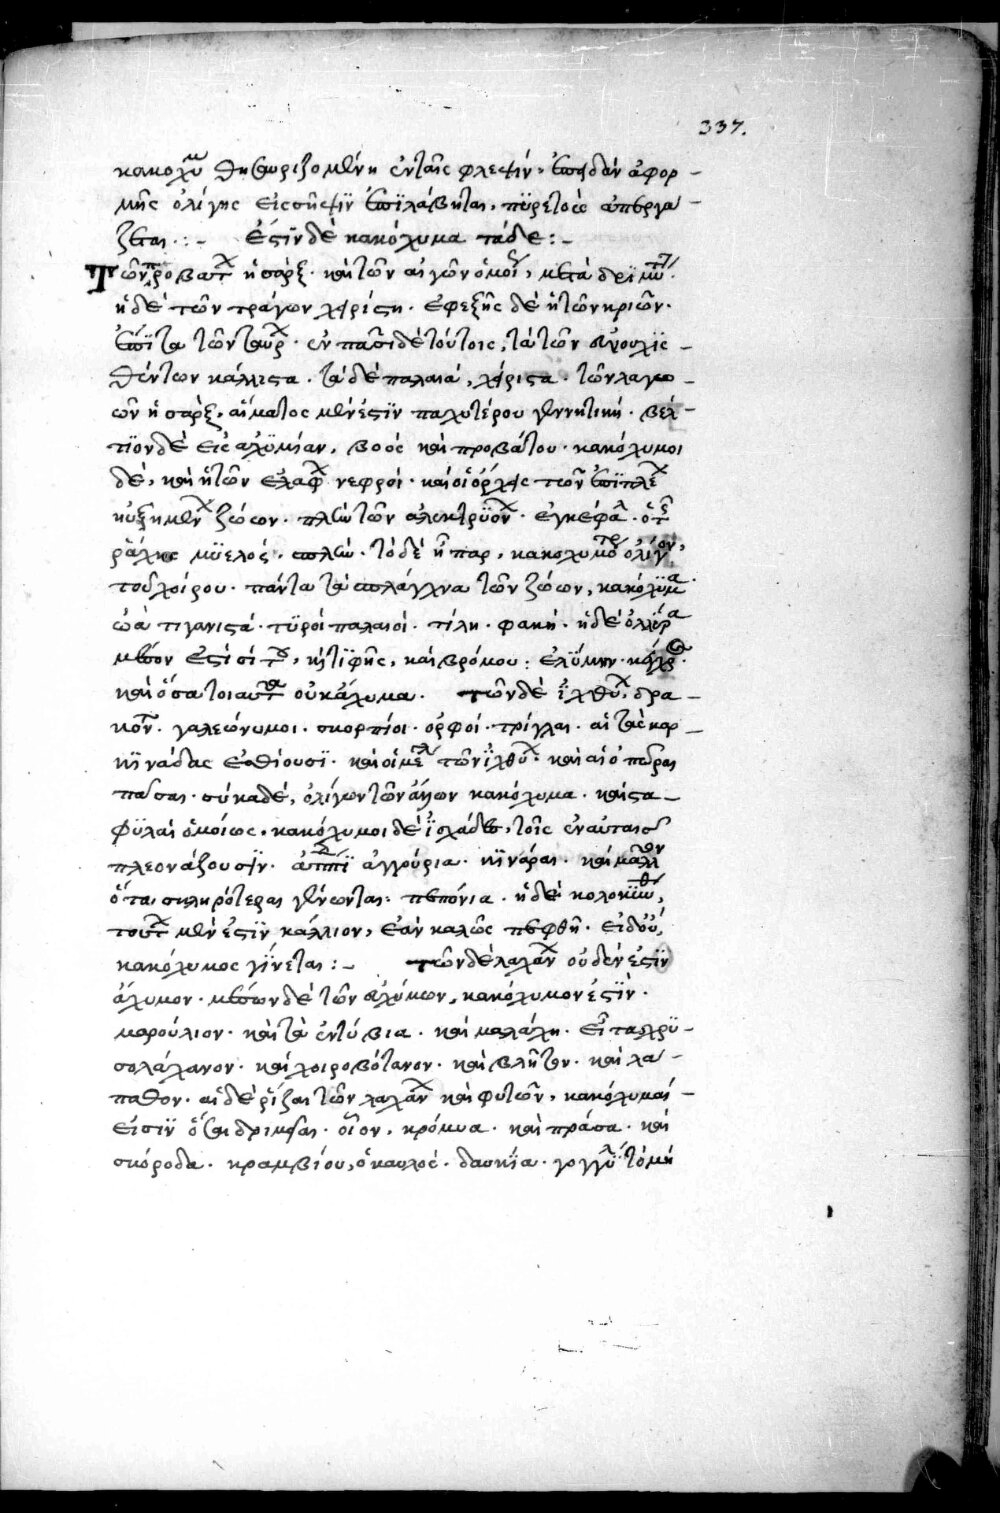 337.
κακοχυμ θησαυριζομένη ἐν ταῖς φλεψίν. ἐπειδὰν ἀφορ-
μῆς ὀλίγης εἰς σῆψϊν ἐπϊλάβηται, πϋρετοὺς ἀπεργά-
ζεται :- ἐστῒν δὲ κακόχυμα τάδε :-
Τῶν προβάτ ἡ σὰρξ. καὶ τῶν αἰγῶν ὁμοί, μετὰ δρϊμύτ.
ἡ δὲ τῶν τράγων χείριστη. ἐφεξῆς δὲ ἡ τῶν κριῶν.
ἔπϊτα τῶν ταύρ. ἐν πᾶσι δὲ τούτοις, τὰ τῶν εὐνουχϊσ-
θέντων κάλλιστα. τὰ δὲ παλαιά, χείριστα. τῶν λαγω-
ῶν ἡ σὰρξ, αἵματος μέν ἐστϊν παχυτέρου γεννητική. βελ-
τῖον δὲ εἰς εὐχϋμίαν, βοὸς καὶ προβάτου. κακόχυμοι
δὲ, καὶ ἡ τῶν ἐλάφ νεφροί. καὶ οἱ ὄρχεις τῶν ἐπῒ πλε
ηὐξημέν ζώων. πλὴν τῶν ἀλεκτρϋόν. ἐγκέφαλ. ὅτε
ῥάχης μϋελός. σπλήν. τὸ δὲ ἧπαρ, κακοχυμότ ὀλίγον,
τοῦ χοίρου. πάντα τὰ σπλάγχνα τῶν ζώων, κακόχϋμα.
ὠὰ τιγανιστά. τϋροὶ παλαιοί. τίλη. φακῆ. ἡ δὲ ὀλλύρα
μέσον ἐστὶ σίτου, κὴ τίφης, καὶ βρόμου: ἐλϋμην. κέγχρ.
καὶ ὅσα τοιαῦτα οὐκ εὔχυμα. τῶν δὲ ἰχθύ, δρά-
κοντ. γαλεώνυμοι. σκορπίοι. ὀρφοί. τρίγλαι. αἱ τὰς καρ-
κϊνάδας ἐσθίουσϊ. καὶ οἱ μελ τῶν ἰχθύ. καὶ αἱ ὀπῶραι
πᾶσαι. σύκα δὲ, ὀλίγων τῶν ἄλλων κακόχυμα. καὶ στα-
φϋλαὶ ὁμοίως. κακόχυμοι δὲ ἰσχάδες, τοῖς ἐν αὐταῖς
πλεονάζουσϊν. ἀππί ἀγγούρια. κϊνάραι. καὶ μᾶλλον
ὅτα, σκληρότεραι γένωνται: πεπόνια. ἡ δὲ κολοκϋνθ,
τούτ μὲν ἐστῒν κάλλιον, ἐὰν καλῶς πεφθῆ. εἰ δ' οὔ,
κακόχυμος γΐνεται :- τῶν δὲ λαχάν οὐδέν ἐστϊν
εὔχυμον. μέσων δὲ τῶν εὐχύμων, κακόχυμον ἐστϊν.
μαρούλιον. καὶ τὰ ἐντύβια. καὶ μαλάχη. εἶτα χρϋ-
σολάχανον. καὶ χοιροβότανον. καὶ βλῆτον. καὶ λά-
παθον. αἱ δὲ ῥίζαι τῶν λαχάν καὶ φυτῶν, κακόχυμαί-
εἰσιν ὅσαι δριμεῖαι. οἷον, κρόμυα. καὶ πράσα. καὶ
σκόροδα. κραμβίου, ὁ καυλός. δαυκΐα. γογγϋλ τὸ μὴ